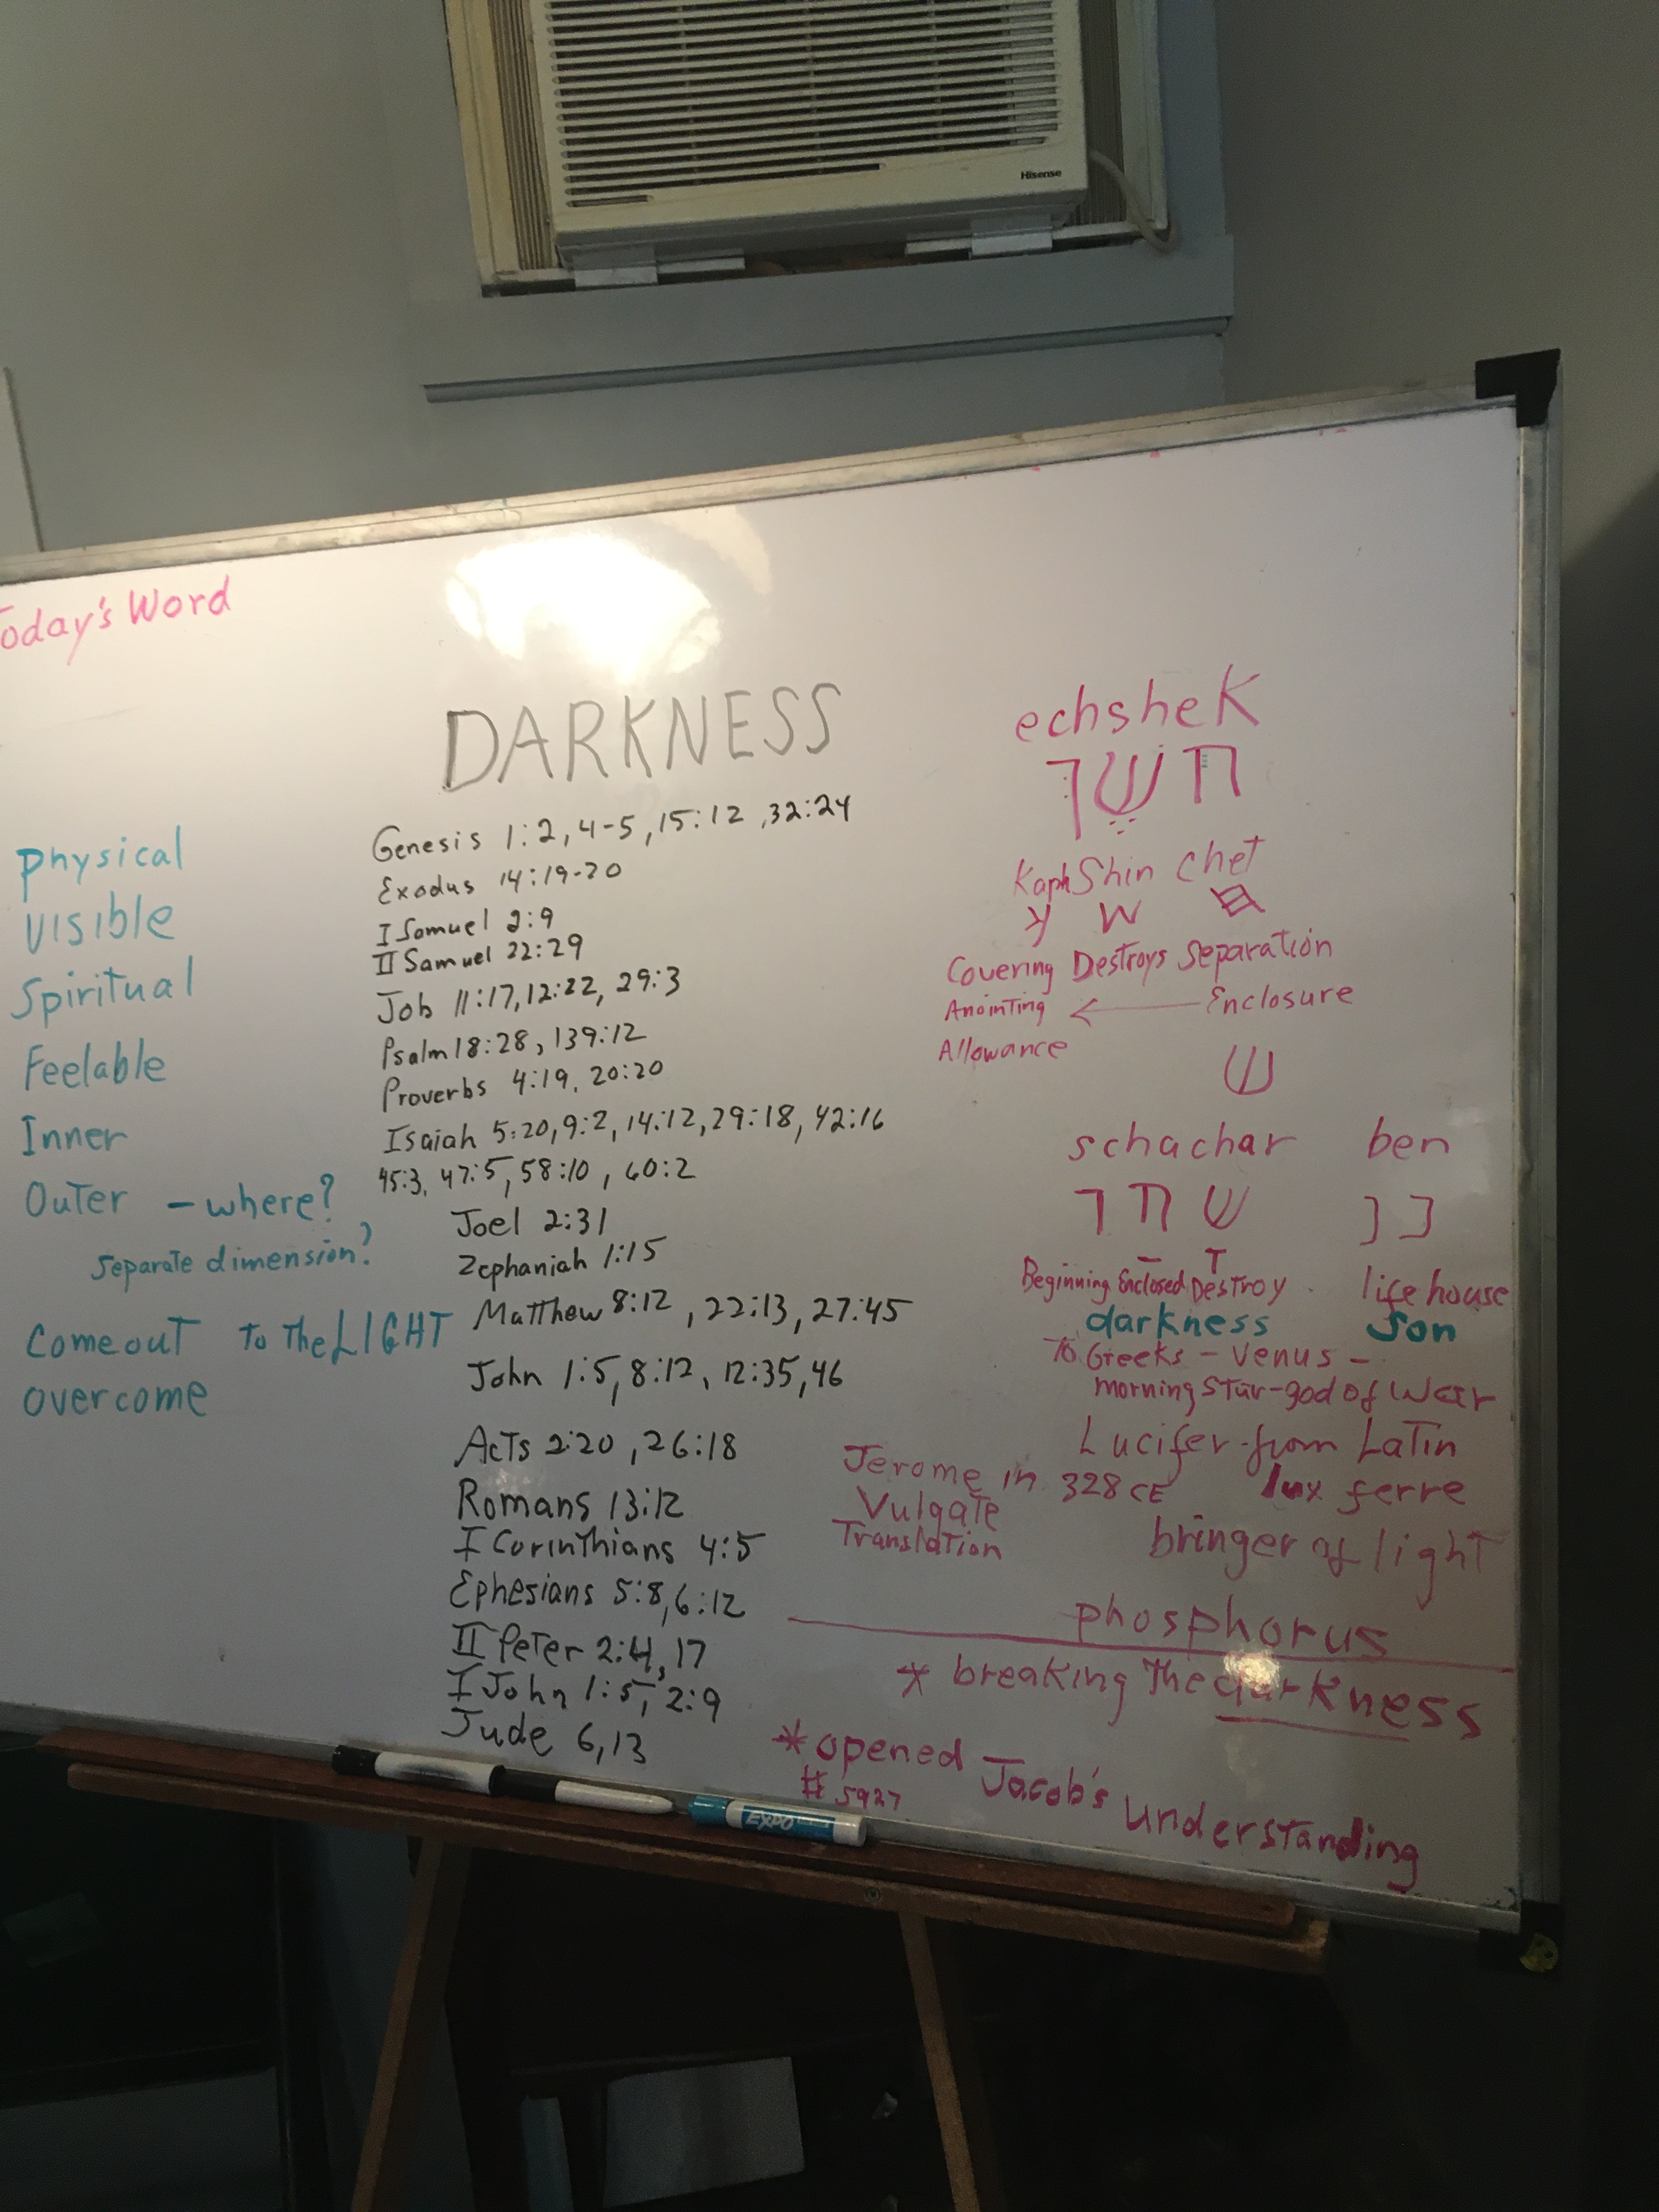 Hisense
Today's Word
DARKNESS
Physical
Visible
Spiritual
Feelable
Inner
Outer - where?
Separate dimension?
Come out to The LIGHT
overcome
Genesis 1:2, 4-5, 15:12, 32:24
Exodus 14:19-20
I Samuel 2:9
II Samuel 22:29
Job 11:17, 12:22, 29:3
Psalm 18:28, 139:12
Proverbs 4:19, 20:20
Isaiah 5:20, 9:2, 14:12, 29:18, 42:16
45:3, 47:5, 58:10, 60:2
Joel 2:31
Zephaniah 1:15
Matthew 8:12, 22:13, 27:45
John 1:5, 8:12, 12:35, 46
Acts 2:20, 26:18
Romans 13:12
I Corinthians 4:5
Ephesians 5:8, 6:12
II Peter 2:4, 17
I John 1:5, 2:9
Jude 6, 13
echshek
חשך
Kaph Shin Chet
Covering Destroys Separation
Anointing ← Enclosure
Allowance
ש
schachar ben
שחר בן
Beginning Enclosed Destroy life house
darkness Son
To Greeks - Venus -
morning star - god of War
Lucifer - from Latin
lux ferre
bringer of light
Jerome in 328 CE
Vulgate
Translation
phosphorus
* breaking The darkness
* opened Jacob's understanding
# 5927
EXPO